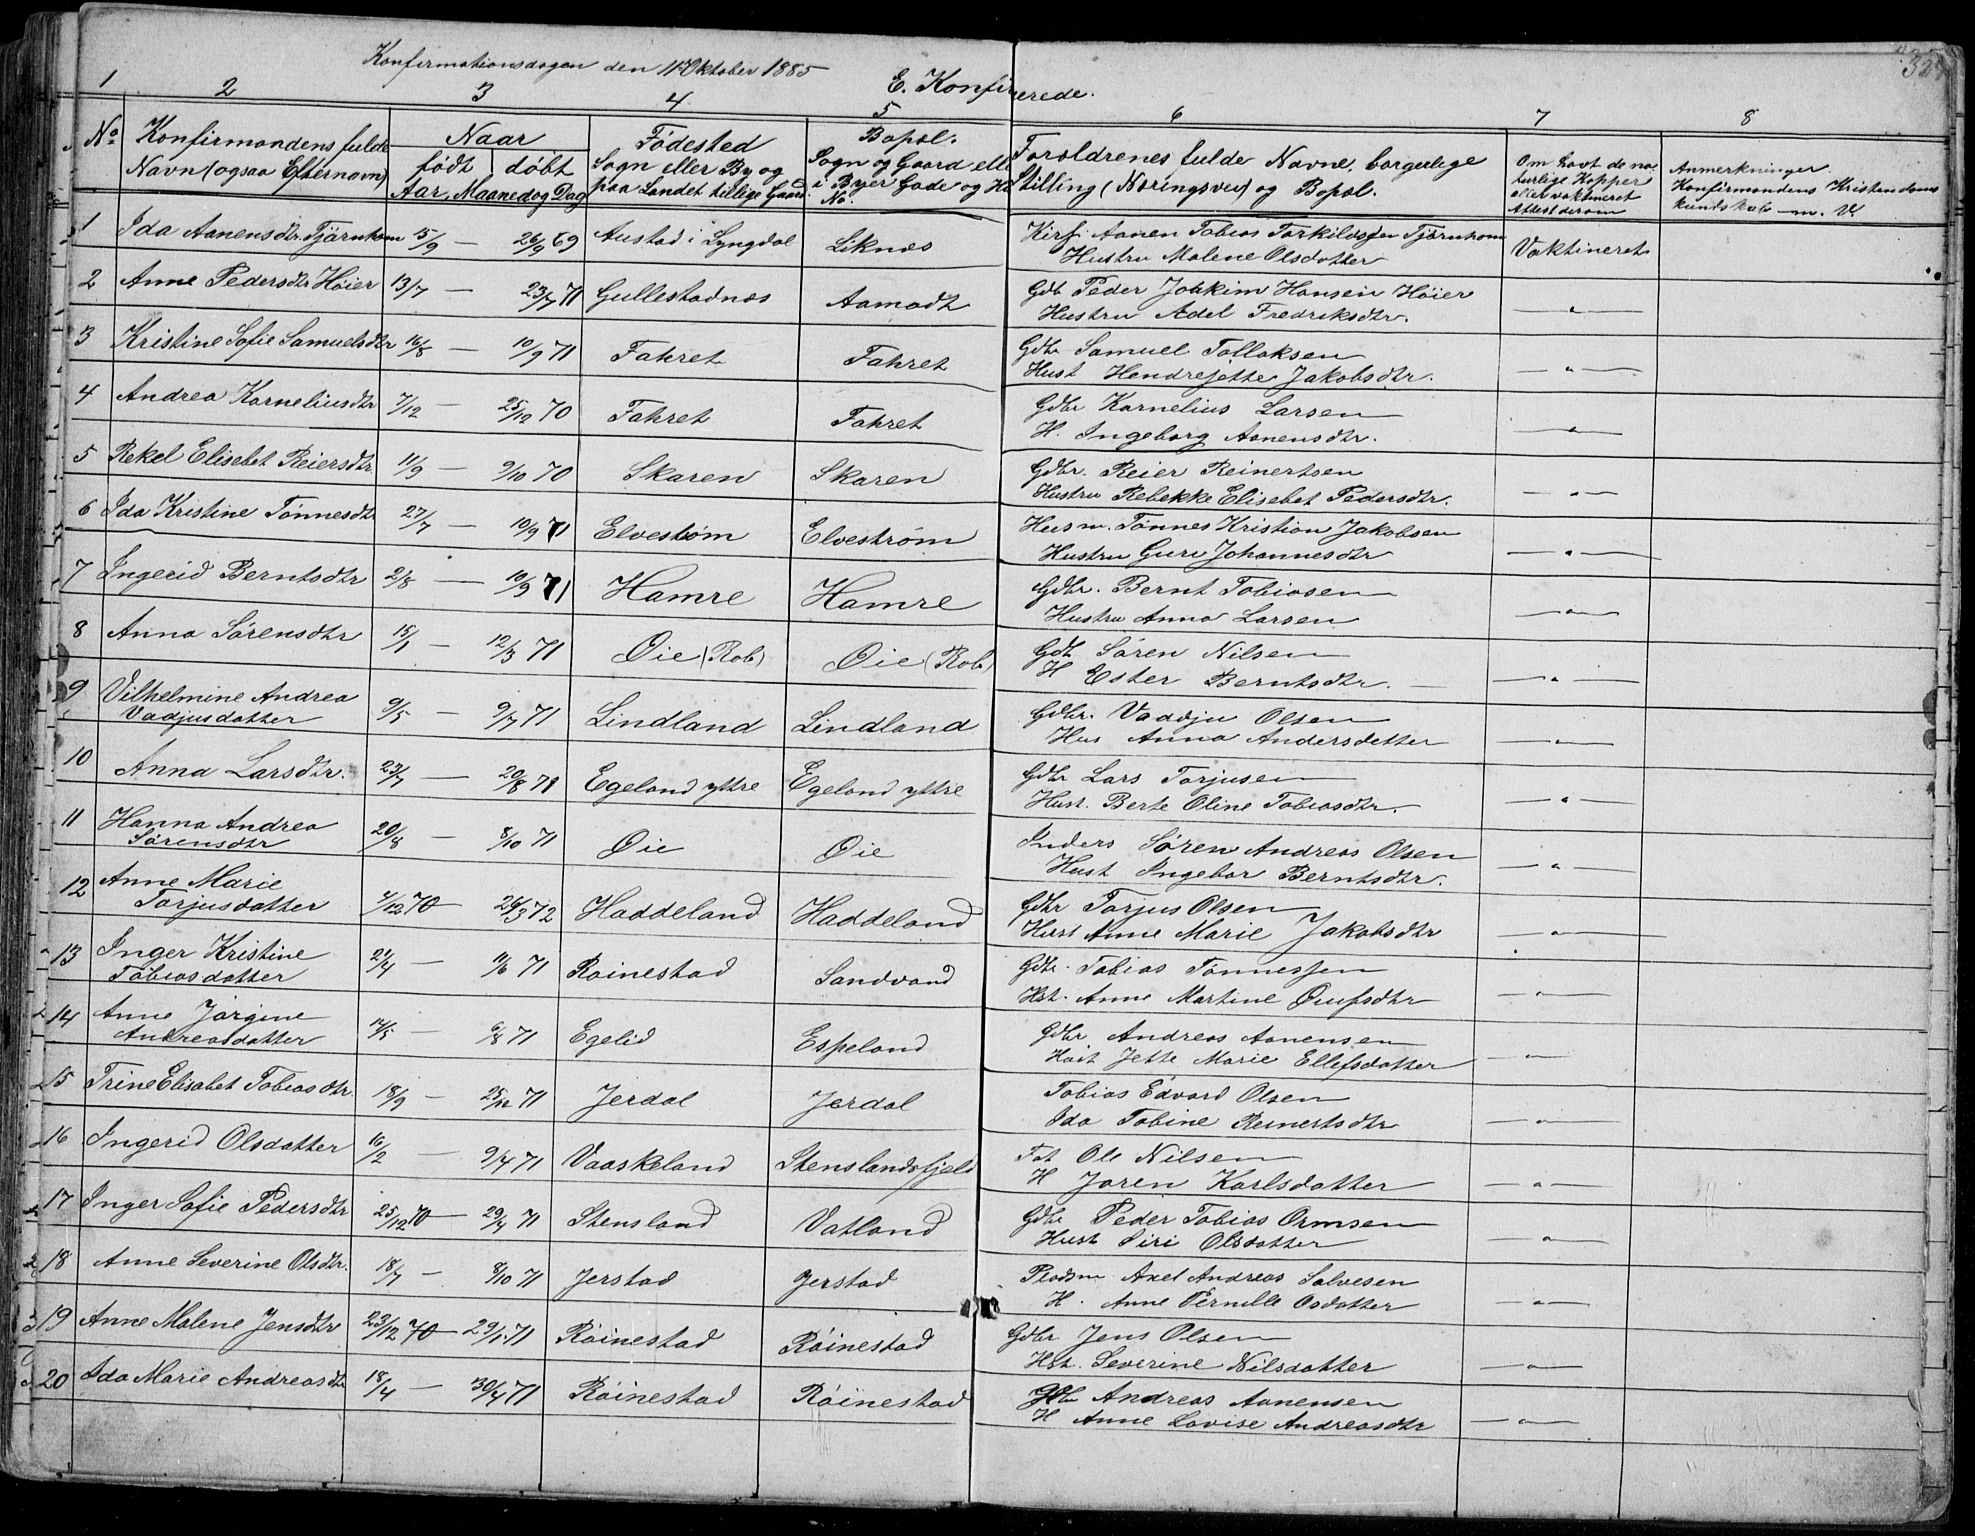 Konfirmationsdagen den 11 Oktober 1885
E. Konfirmerede.
1 2 3 4 5 6 7 8
No. Konfirmandens fulde Navn (ogsaa Efternavn) Naar født døbt Aar, Maaned og Dag Fødested Sogn eller By og paa Landet tillige Gaard. Bopæl. Sogn og Gaard eller i Byer Gade og Hs No. Forældrenes fulde Navne, borgerlige Stilling (Næringsvei) og Bopæl. Om havt de naturlige Kopper eller vaktineret Attest derom Anmerkninger. Konfirmandens Kristendomskundskab m. V.
1 Ida Aanensdtr. Tjörnhom 15/9 — 26/9 69 Austad i Lyngdal Liknes Kirks. Aanen Tobias Torkildsen Tjörnhom Vaktineret
Hustru Malene Olsdatter
2 Anne Pedersdtr Höier 13/7 — 23/7 71 Gullestadnes Aamodt Gdb Peder Joakim Hansen Höier — " —
Hustru Adel Fredriksdtr.
3 Kristine Sofie Samuelsdtr 16/8 — 10/9 71 Fahret Fahret Gdbr Samuel Tollaksen — " —
Hust Hendrejette Jakobsdtr.
4 Andrea Korneliusdtr 7/12 — 25/12 70 Fahret Fahret Gdbr Kornelius Larsen — " —
H. Ingeborg Aanensdtr.
5 Rekel Elisebet Reiersdtr 11/9 — 9/10 70 Skaren Skaren Gdbr. Reier Reinertsen — " —
Hustru Rebekke Elisebet Pedersdtr.
6 Ida Kristine Tönnesdtr 27/7 — 10/9 71 Elvestrøm Elvestrøm Husm. Tönnes Kristian Jakobsen — " —
Hustru Guru Johannesdtr
7 Ingerid Berntsdtr 2/8 — 10/9 71 Hamre Hamre Gdbr. Bernt Tobiasen — " —
Hustru Anna Larsen
8 Anna Sørensdtr 15/1 — 12/3 71 Øie (Rob) Øie (Rob) Gdb Søren Nilsen — " —
H Ester Berntsdtr.
9 Vilhelmine Andrea Vadjusdatter 9/5 — 9/7 71 Lindland Lindland Gdbr. Vaddju Olsen — " —
Hus Anna Andersdatter
10 Anna Larsdtr. 23/7 — 20/8 71 Egeland yttre Egeland yttre Gdbr Lars Torjusen — " —
Hust. Berte Oline Tobiasdtr.
11 Hanna Andrea Sörensdtr 20/8 — 8/10 71 Øie Øie Inders Søren Andreas Olsen — " —
Hust Ingebor Berntsdtr.
12 Anne Marie Torjusdatter 4/12 70 — 26/3 72 Haddeland Haddeland Gdbr Torjus Olsen — " —
Hust Anne Marie Jakobsdtr
13 Inger Kristine Tobiasdatter 21/4 — 11/6 71 Röinestad Sandvand Gdbr. Tobias Tönnessen — " —
Hst. Anne Martine Ørufsdtr
14 Anne Jörgine Andreasdatter — 6/8 71 Egelid Espeland Gdbr Andreas Aanensen — " —
Hust Jette Marie Ellefsdatter
15 Trine Elisabet Tobiasdtr 18/9 — 25/12 71 Jerdal Jerdal Tobias Edvard Olsen — " —
Ida Tobine Reinertsdtr
16 Ingerid Olsdatter 16/2 — 9/4 71 Vaaskeland Stenslandsfjeld Ole Nilsen — " —
H Joren Karlsdatter
17 Inger Sofie Pedersdtr 25/12 70 — 29/4 71 Stensland Vatland Gdbr Peder Tobias Ormsen — " —
Hust Siri Olsdatter
18 Anne Severine Olsdtr. 18/7 — 8/10 71 Jerstad Jerstad Pladsm Axel Andreas Salvesen — " —
H. Anne Pernille Osdatter
19 Anne Malene Jensdtr 23/12 70 — 29/1 71 Röinestad Röinestad Gdbr Jens Olsen — " —
Hst. Severine Nilsdatter
20 Ida Marie Andreasdtr 18/4 — 30/4 71 Röinestad Röinestad Gdbr Andreas Aanensen — " —
H Anne Lovise Andreasdtr